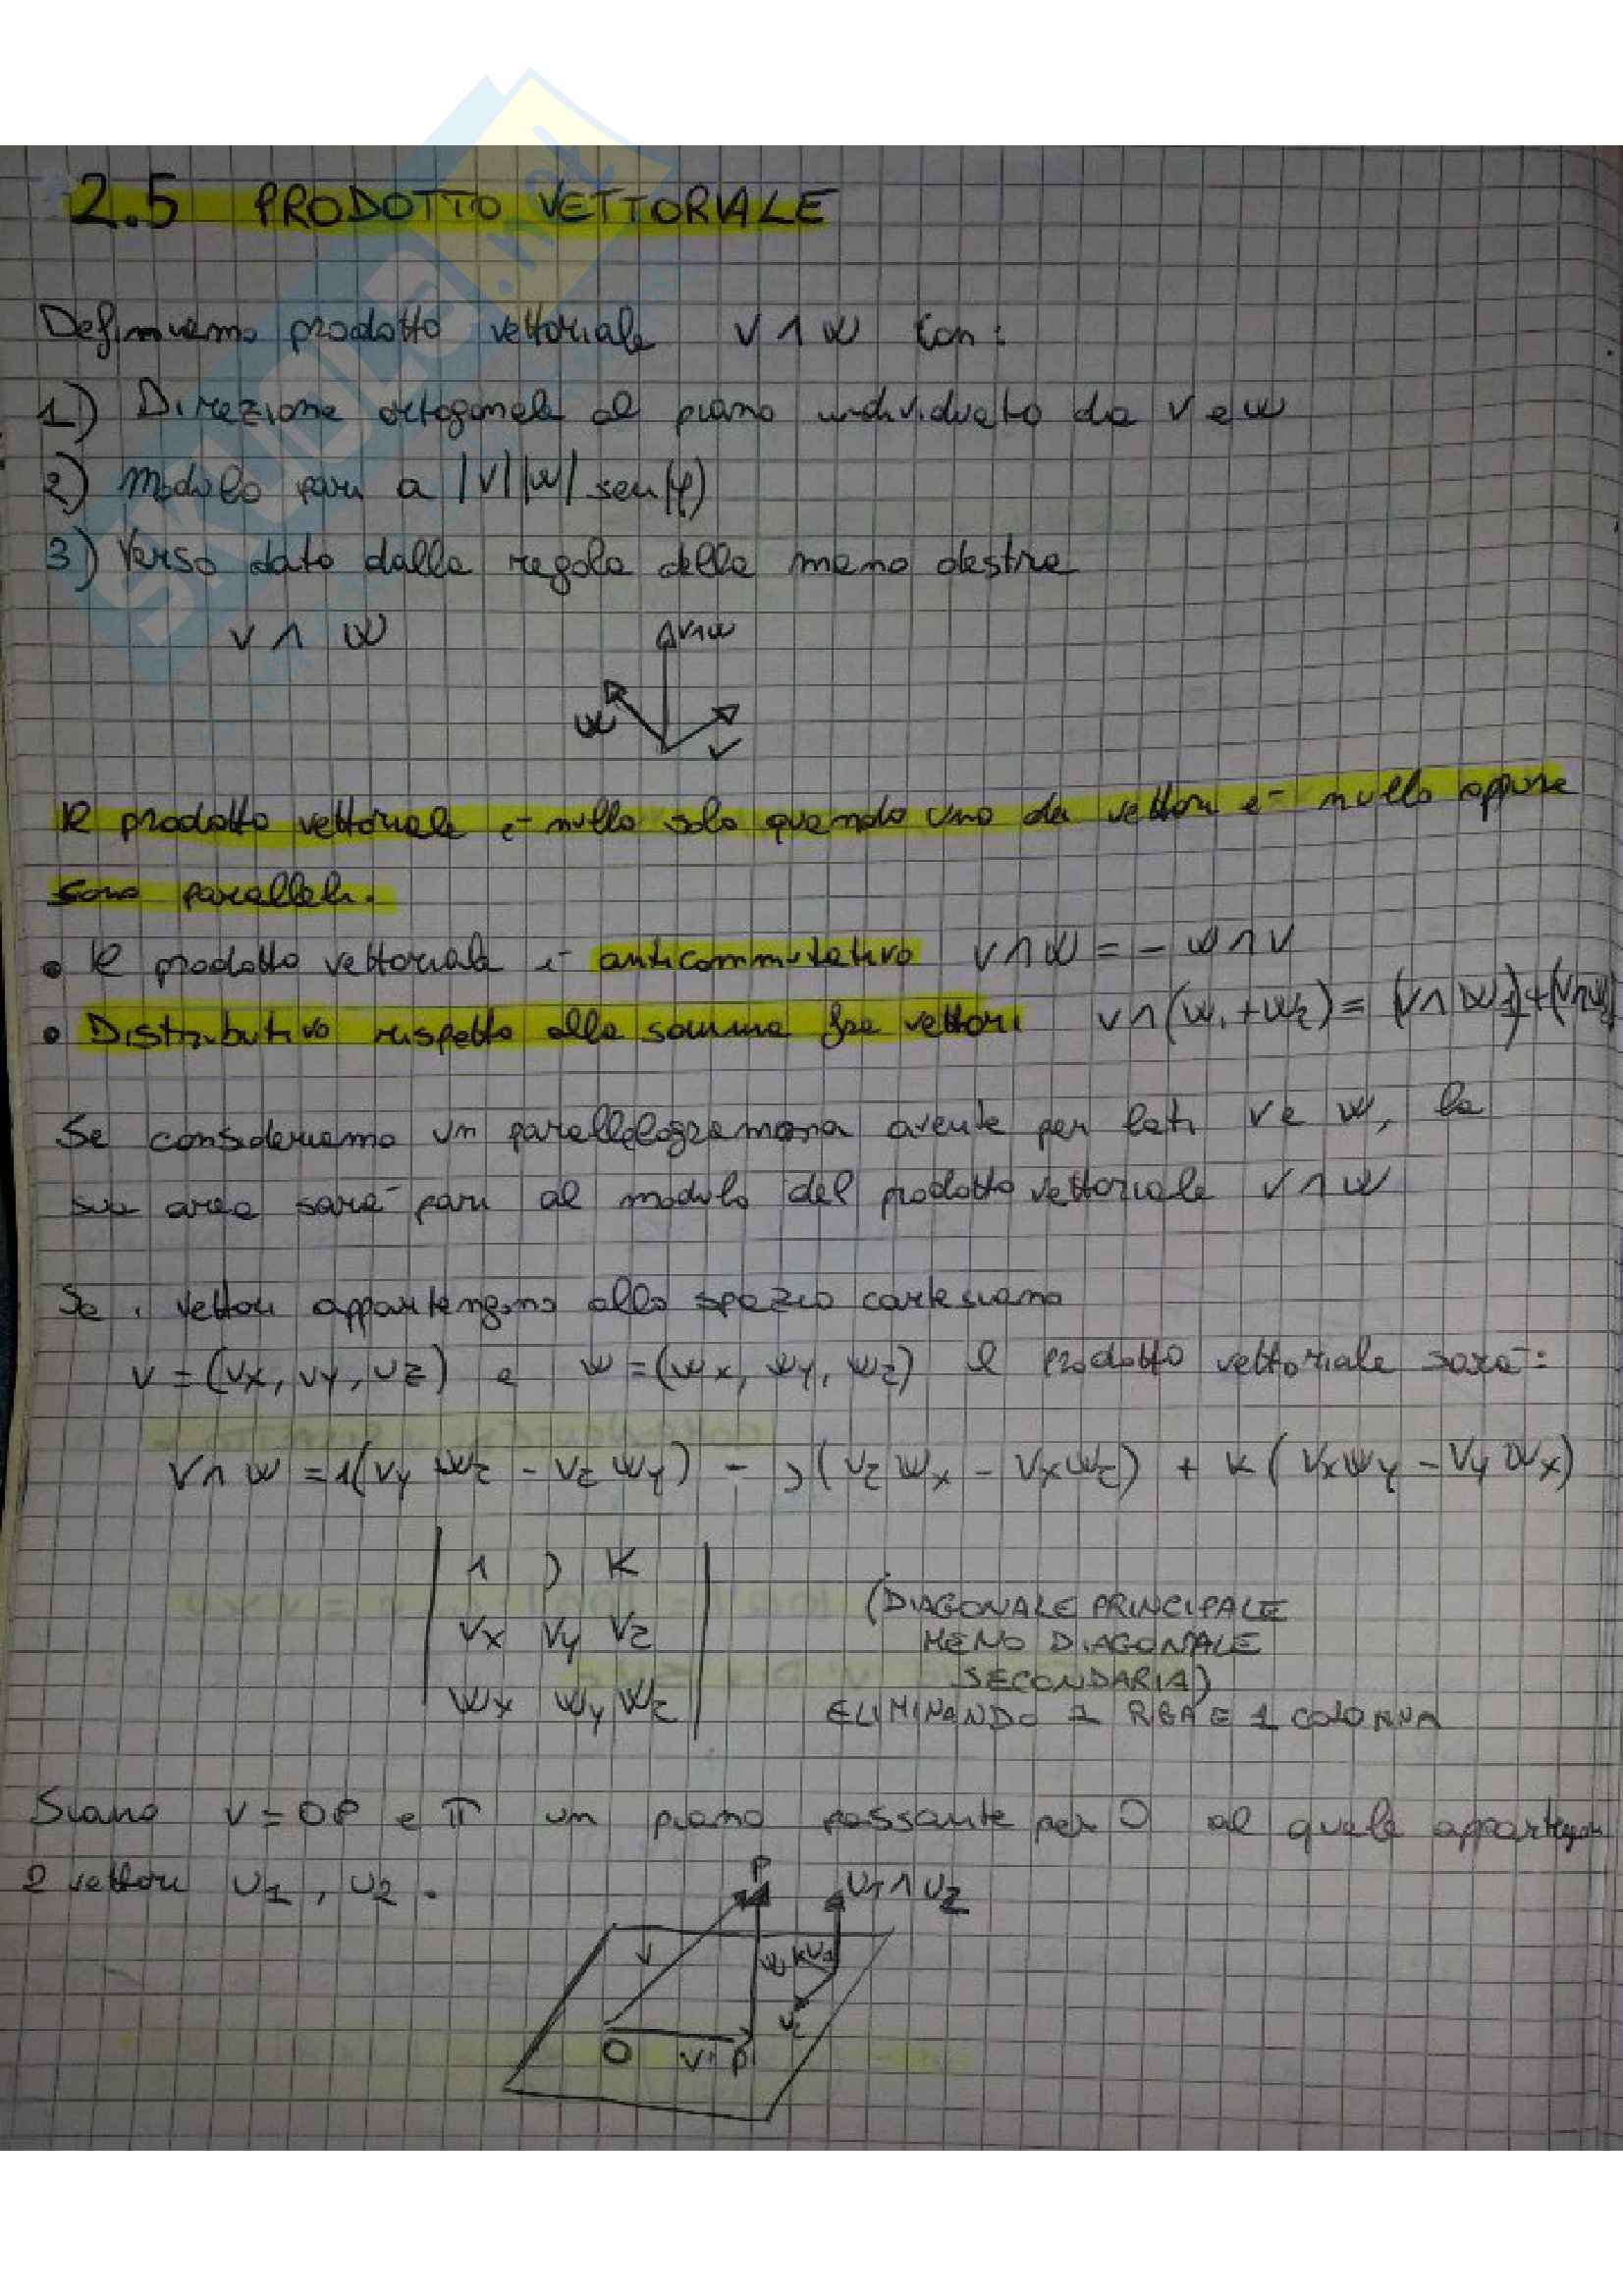 SKUOLA.net
2.5 PRODOTTO VETTORIALE
Definiremo prodotto vettoriale v ∧ w con:
1) Direzione ortogonale al piano individuato da v e w
2) Modulo pari a |v||w| sen(φ)
3) Verso dato dalla regola della mano destra
v ∧ w
v∧w
w
v
Il prodotto vettoriale è nullo solo quando uno dei vettori è nullo oppure
sono paralleli.
• Il prodotto vettoriale è anticommutativo v ∧ w = - w ∧ v
• Distributivo rispetto alla somma fra vettori v∧(w1+w2) = (v∧w1)+(v∧w2)
Se consideriamo un avente per lati v e w, la
sua area sarà pari al modulo del prodotto vettoriale v ∧ w
Se i vettori appartengono allo spazio cartesiano
v = (vx, vy, vz) e w = (wx, wy, wz) il prodotto vettoriale sarà:
v ∧ w = i(vy wz - vz wy) - j(vz wx - vx wz) + k(vx wy - vy wx)
i j k
vx vy vz
wx wy wz
(DIAGONALE PRINCIPALE
MENO DIAGONALE
SECONDARIA)
ELIMINANDO 1 E 1 COLONNA
Siano v = OP e π un piano passante per O al quale
2 vettori u1, u2.
P
u1 ∧ u2
v
w
O
v'